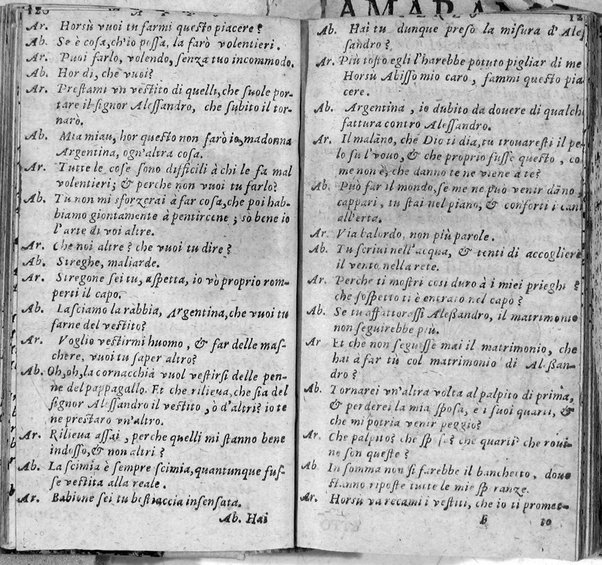 120
Ar. Horsù vuoi tu farmi questo piacere?
Ab. Se è cosa, ch'io possa, la farò volentieri.
Ar. Puoi farlo, volendo, senza tuo incommodo.
Ab. Hor di, che vuoi?
Ar. Prestami vn vestito di quelli, che suole por-
tare il signor Alessandro, che subito il tor-
narò.
Ab. Mia miau, hor questo non farò io, madonna
Argentina, ogn'altra cosa.
Ar. Tutte le cose sono difficili à chi le fa mal
volentieri; & perche non vuoi tu farlo?
Ab. Tu non mi sforzerai à far cosa, che poi hab-
biamo giontamente à pentircene; sò bene io
l'arte di voi altre.
Ar. Che noi altre? che vuoi tu dire?
Ab. Streghe, maliarde.
Ar. Stregone sei tu, aspetta, io vò proprio rom-
perti il capo.
Ab. Lasciamo la rabbia, Argentina, che vuoi tu
farne del vestito?
Ar. Voglio vestirmi huomo, & far delle mas-
chere, vuoi tu saper altro?
Ab. Oh, oh, la cornacchia vuol vestirsi delle pen-
ne del pappagallo. Et che rilieva, che sia del
signor Alessandro il vestito, ò d'altri? io te
ne prestaro vn'altro.
Ar. Rilieva assai, perche quelli mi stanno bene
indosso, & non altri?
Ab. La scimia è sempre scimia, quantunque fus-
se vestita alla reale.
Ar. Babione sei tu bestiaccia insensata.
Ab. Hai
AMARAN
12
Ab. Hai tu dunque preso la misura d'Ale
sandro?
Ar. Più tosto egli l'harebbe potuto pigliar di me
Horsu Abisso mio caro, fammi questo pia
cere.
Ab. Argentina, io dubito da douere di qualch
fattura contro Alessandro.
Ar. Il malano, che Dio ti dia, tu trouaresti il pe
lo su l'vouo, & che proprio fusse questo, co
me non è, che danno te ne viene à te?
Ab. Può far il mondo, se me ne può venir dano,
cappari, tu stai nel piano, & conforti i cani
all'erta.
Ar. Via balordo, non più parole.
Ab. Tu scriui nell'acqua, & tenti di accogliere
il vento nella rete.
Ar. Perche ti mostri così duro à i miei prieghi?
che sospetto ti è entrato nel capo?
Ab. Se tu affattorassi Alessandro, il matrimonio
non seguirebbe più.
Ar Et che non seguesse mai il matrimonio, che
hai à far tù col matrimonio di Alessan-
dro?
Ab. Tornarei vn'altra volta al palpito di prima,
& perderei la mia sposa, e i suoi quarti, &
che mi potria venir peggio?
Ar. Che palpito? che sposa? che quarti? che roui-
ne son queste?
Ab. In somma non si farebbe il banchetto, doue
stanno riposte tutte le mie speranze.
Ar. Horsù va recami i vestiti, che io ti promet-
to